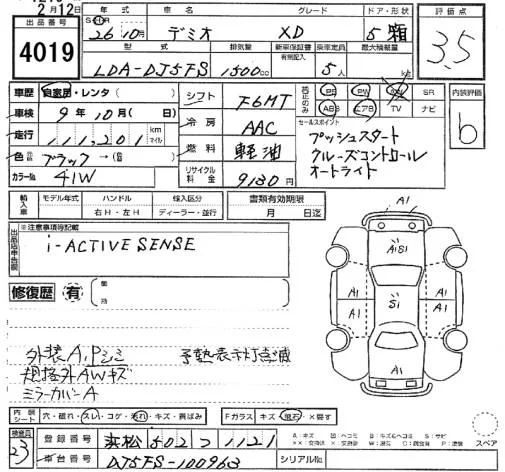 2月12日
出品番号
4019
年式 グレード ドア・形状
26年10月 デミオ XD 5 箱
型式 排気量 新車保証書 乗車定員 最大積載量
有無記入
LDA-DJ5FS 1500cc 5人 kg
評価点
3.5
車歴 自家用・レンタ ( )
車検 9年10月( 日)
走行 111,201 km マイル
色 ブラック→( )
カラーNo. 41W
シフト F6MT
冷房 AAC
燃料 軽油
リサイクル料金 9180円
純正のみ PS PW SR
ABS エアB TV ナビ
内装評価
b
セールスポイント
プッシュスタート
クルーズコントロール
オートライト
輸入車 モデル年式 ハンドル 輸入区分
年 右H・左H ディーラー・並行
書類有効期限
月 日迄
出品店申告欄
※注意事項等記載
i-ACTIVESENSE
修復歴 有 箇所
外装A,Pシミ 予熱表示灯点滅
規格外AWキズ
ミラーカバーA
A1
A1S1
A1 A1
A1 A1
S1
A1
内装シート 穴・破れ・スレ・コゲ・汚れ・キズ・黄ばみ
Fガラス キズ・飛石・×要す
スペア
検査員
23
登録番号 浜松 502 つ 1121
車台番号 DJ5FS-100963
シリアルNo.